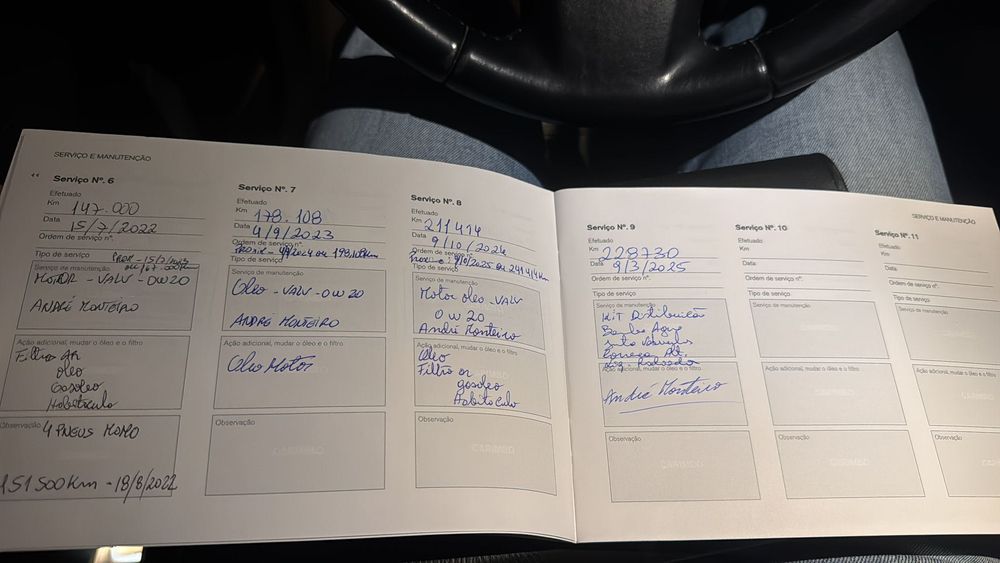 SERVIÇO E MANUTENÇÃO
Serviço Nº. 6
Efetuado
Km 147.000
Data 15/7/2022
Ordem de serviço nº.
Tipo de serviço
Serviço de manutenção
MOTOR - VALV - 0W20
ANDRÉ MONTEIRO
Ação adicional, mudar o óleo e o filtro
Filtro AR
óleo
Gasóleo
Habitáculo
Observação 4 PNEUS MOMO
151500Km - 18/8/2022
Serviço Nº. 7
Efetuado
Km 178.108
Data 4/9/2023
Ordem de serviço nº.
Tipo de serviço
Serviço de manutenção
Óleo - VALV - 0W20
ANDRÉ MONTEIRO
Ação adicional, mudar o óleo e o filtro
Óleo Motor
Observação
CARIMBO
Serviço Nº. 8
Efetuado
Km 211414
Data 9/10/2024
Ordem de serviço nº.
9/10/2025 ou 241414Km
Tipo de serviço
Serviço de manutenção
Motor óleo - VALV
0W20
André Monteiro
Ação adicional, mudar o óleo e o filtro
Óleo
Filtro ar
gasóleo
Habitáculo
Observação
CARIMBO
SERVIÇO E MANUTENÇÃO
Serviço Nº. 9
Efetuado
Km 228730
Data 9/3/2025
Ordem de serviço nº.
Tipo de serviço
Serviço de manutenção
Kit Distribuição
Bomba Água
Correia Alt.
Ação adicional, mudar o óleo e o filtro
André Monteiro
Observação
CARIMBO
Serviço Nº. 10
Efetuado
Km
Data
Ordem de serviço nº.
Tipo de serviço
Serviço de manutenção
Ação adicional, mudar o óleo e o filtro
Observação
Serviço Nº. 11
Efetuado
Km
Data
Ordem de serviço nº.
Tipo de serviço
Serviço de manutenção
Ação adicional, mudar o óleo e o filtro
Observação